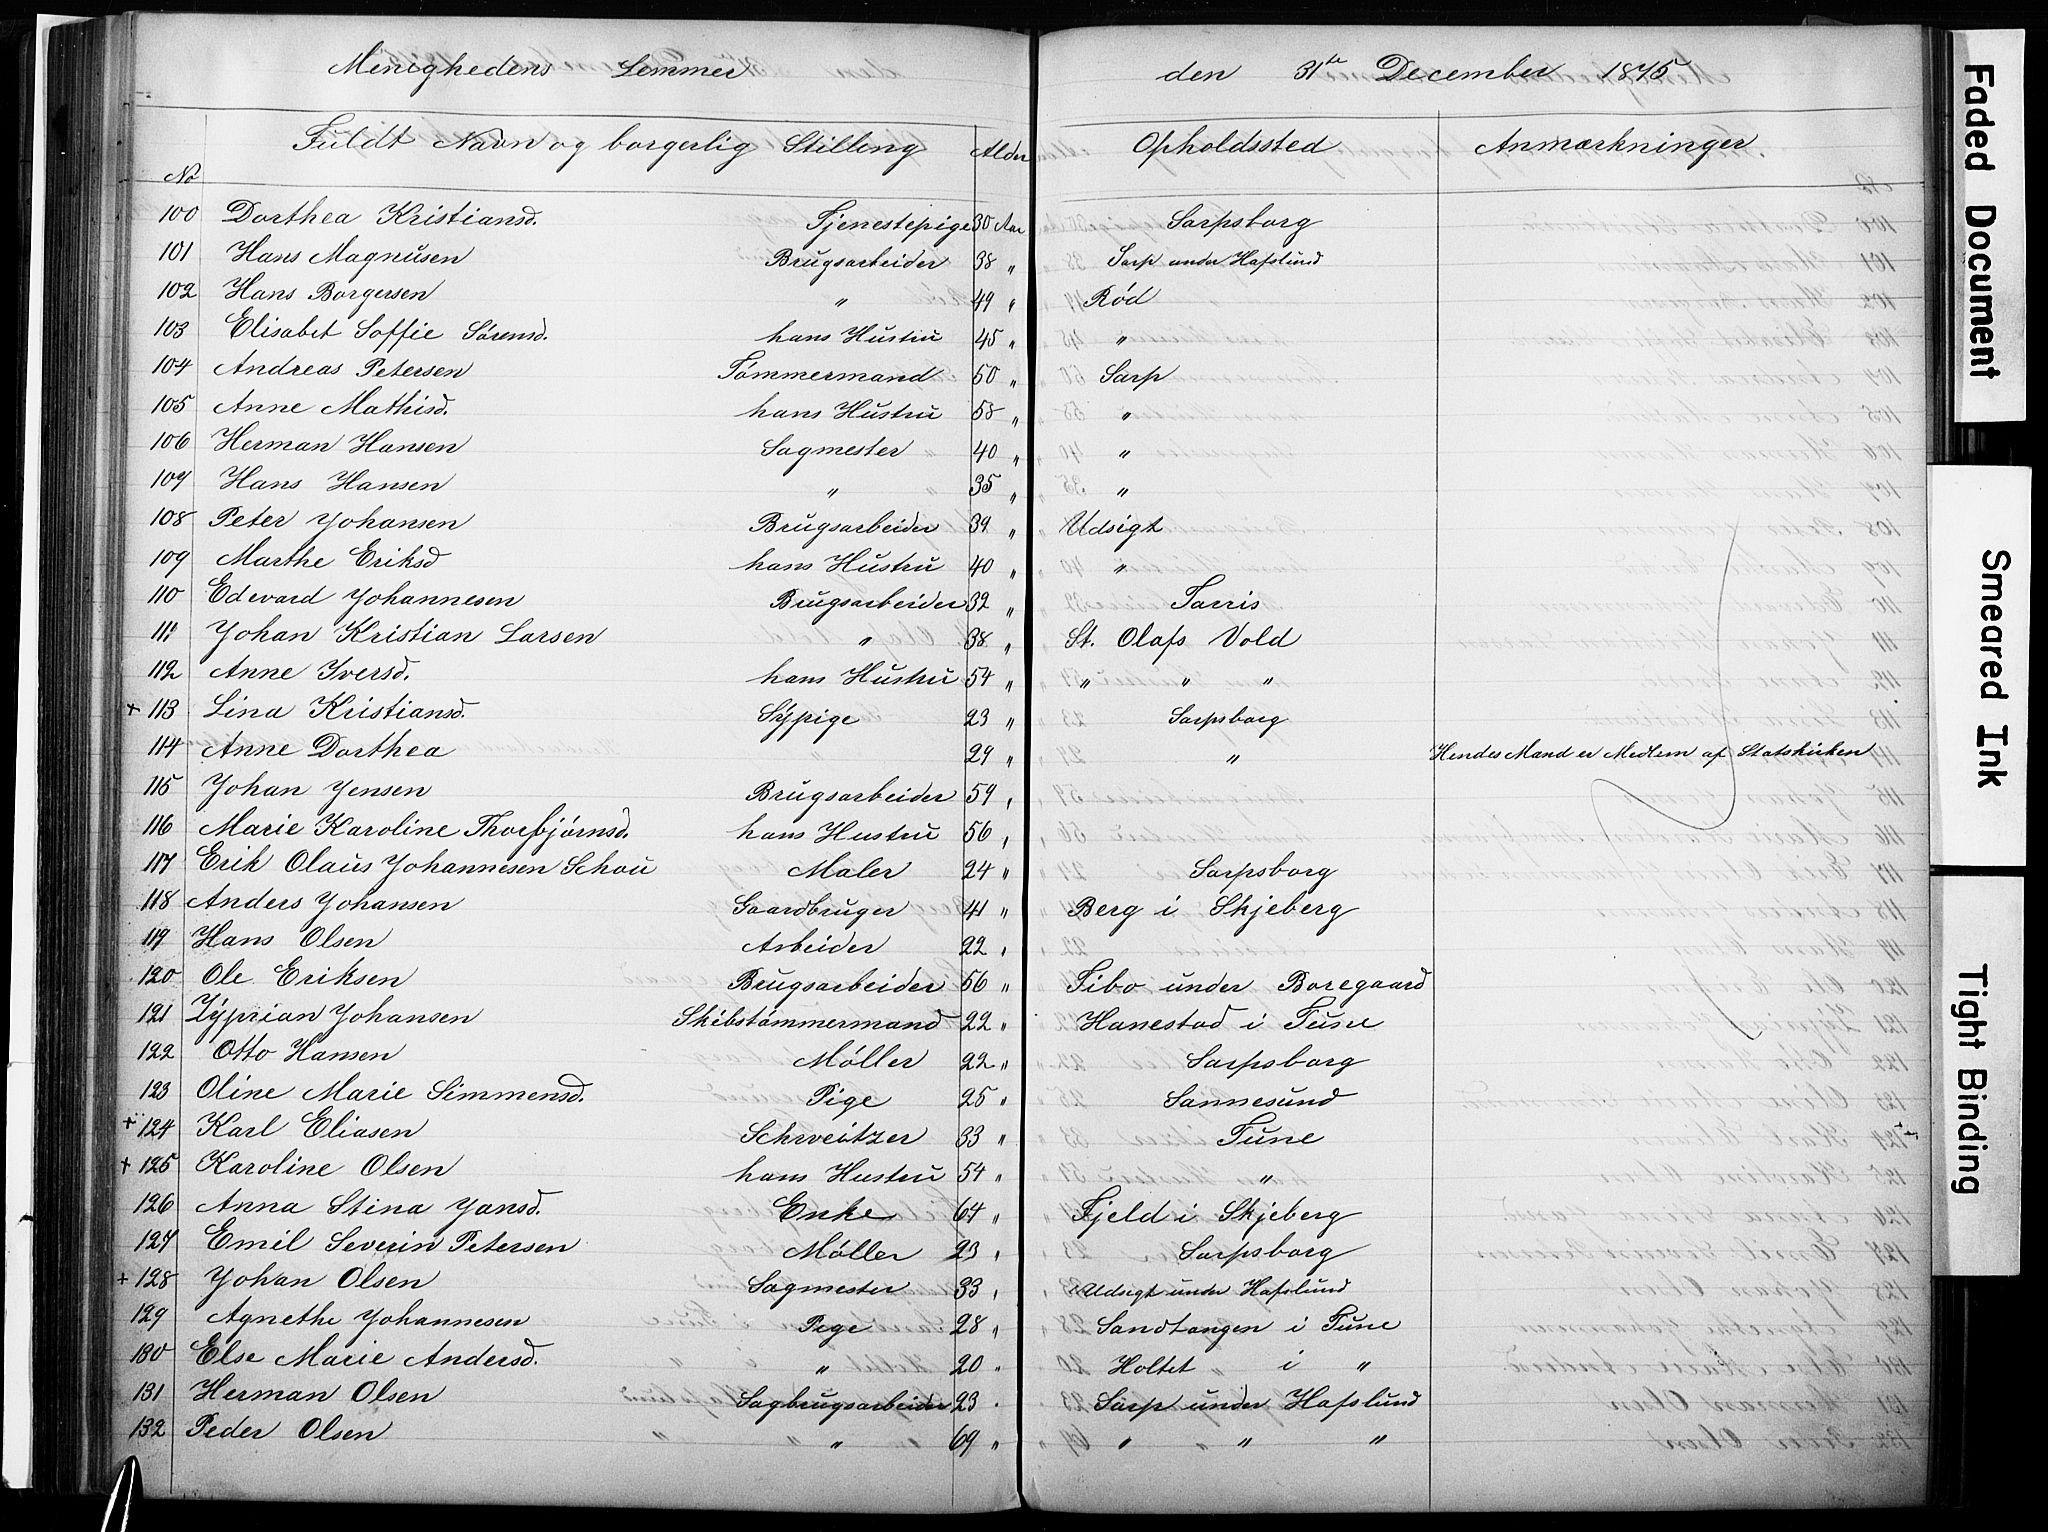 Menighedens Lemmer den 31te December 1875
No Fuldt Navn og borgerlig Stilling Alder Opholdssted Anmærkninger.
100 Dorthea Kristiansd. Tjenestepige 30 Aar Sarpsborg
101 Hans Magnusen Brugsarbeider 38 " Sarp under Hafslund
102 Hans Borgersen " 49 " Rød
103 Elisabet Soffie Sørensd. hans Hustru 45 " "
104 Andreas Petersen Tømmermand 50 " Sarp
105 Anne Mathisd. hans Hustru 58 " "
106 Herman Hansen Sagmester 40 " "
107 Hans Hansen " 35 " "
108 Peter Johansen Brugsarbeider 39 " Udsigt
109 Marthe Eriksd hans Hustru 40 " "
110 Edevard Johannesen Brugsarbeider 32 " Tarris
111 Johan Kristian Larsen " 38 " St. Olafs Vold
112 Anne Iversd. hans Hustru 54 " " " "
+ 113 Lina Kristiansd. Sÿpige 23 " Sarpsborg
114 Anne Dorthea 29 " " Hendes Mand er Medlem af Statskirken
115 Johan Jensen Brugsarbeider 59 "
116 Marie Karoline Thorbjørnsd. hans Hustru 56 "
117 Erik Olaus Johannesen Schou Maler 24 " Sarpsborg
118 Anders Johansen Gaardbruger 41 " Berg i Skjeberg
119 Hans Olsen Arbeider 22 "
120 Ole Eriksen Brugsarbeider 56 " Fibo under Boregaard
121 Zÿprian Johansen Skibstømmermand 22 " Hanestad i Tune
122 Otto Hansen Møller 22 " Sarpsborg
123 Oline Marie Simmensd. Pige 25 " Sannesund
+ 124 Karl Eliasen Schweitzer 33 " Tune
+ 125 Karoline Olsen hans Hustru 54 " "
126 Anna Stina Jansd. Enke 64 " Fjeld i Skjeberg
127 Emil Severin Petersen Møller 23 " Sarpsborg
+ 128 Johan Olsen Sagmester 33 " Udsigt under Hafslund
129 Agnethe Johannesen Pige 28 " Sandtangen i Tune
130 Else Marie Andersd. " 20 " Holtet i "
131 Herman Olsen Sagbrugsarbeider 23 " Sarp under Hafslund
132 Peder Olsen " 69 " " " "
Faded Document
Smeared Ink
Tight Binding